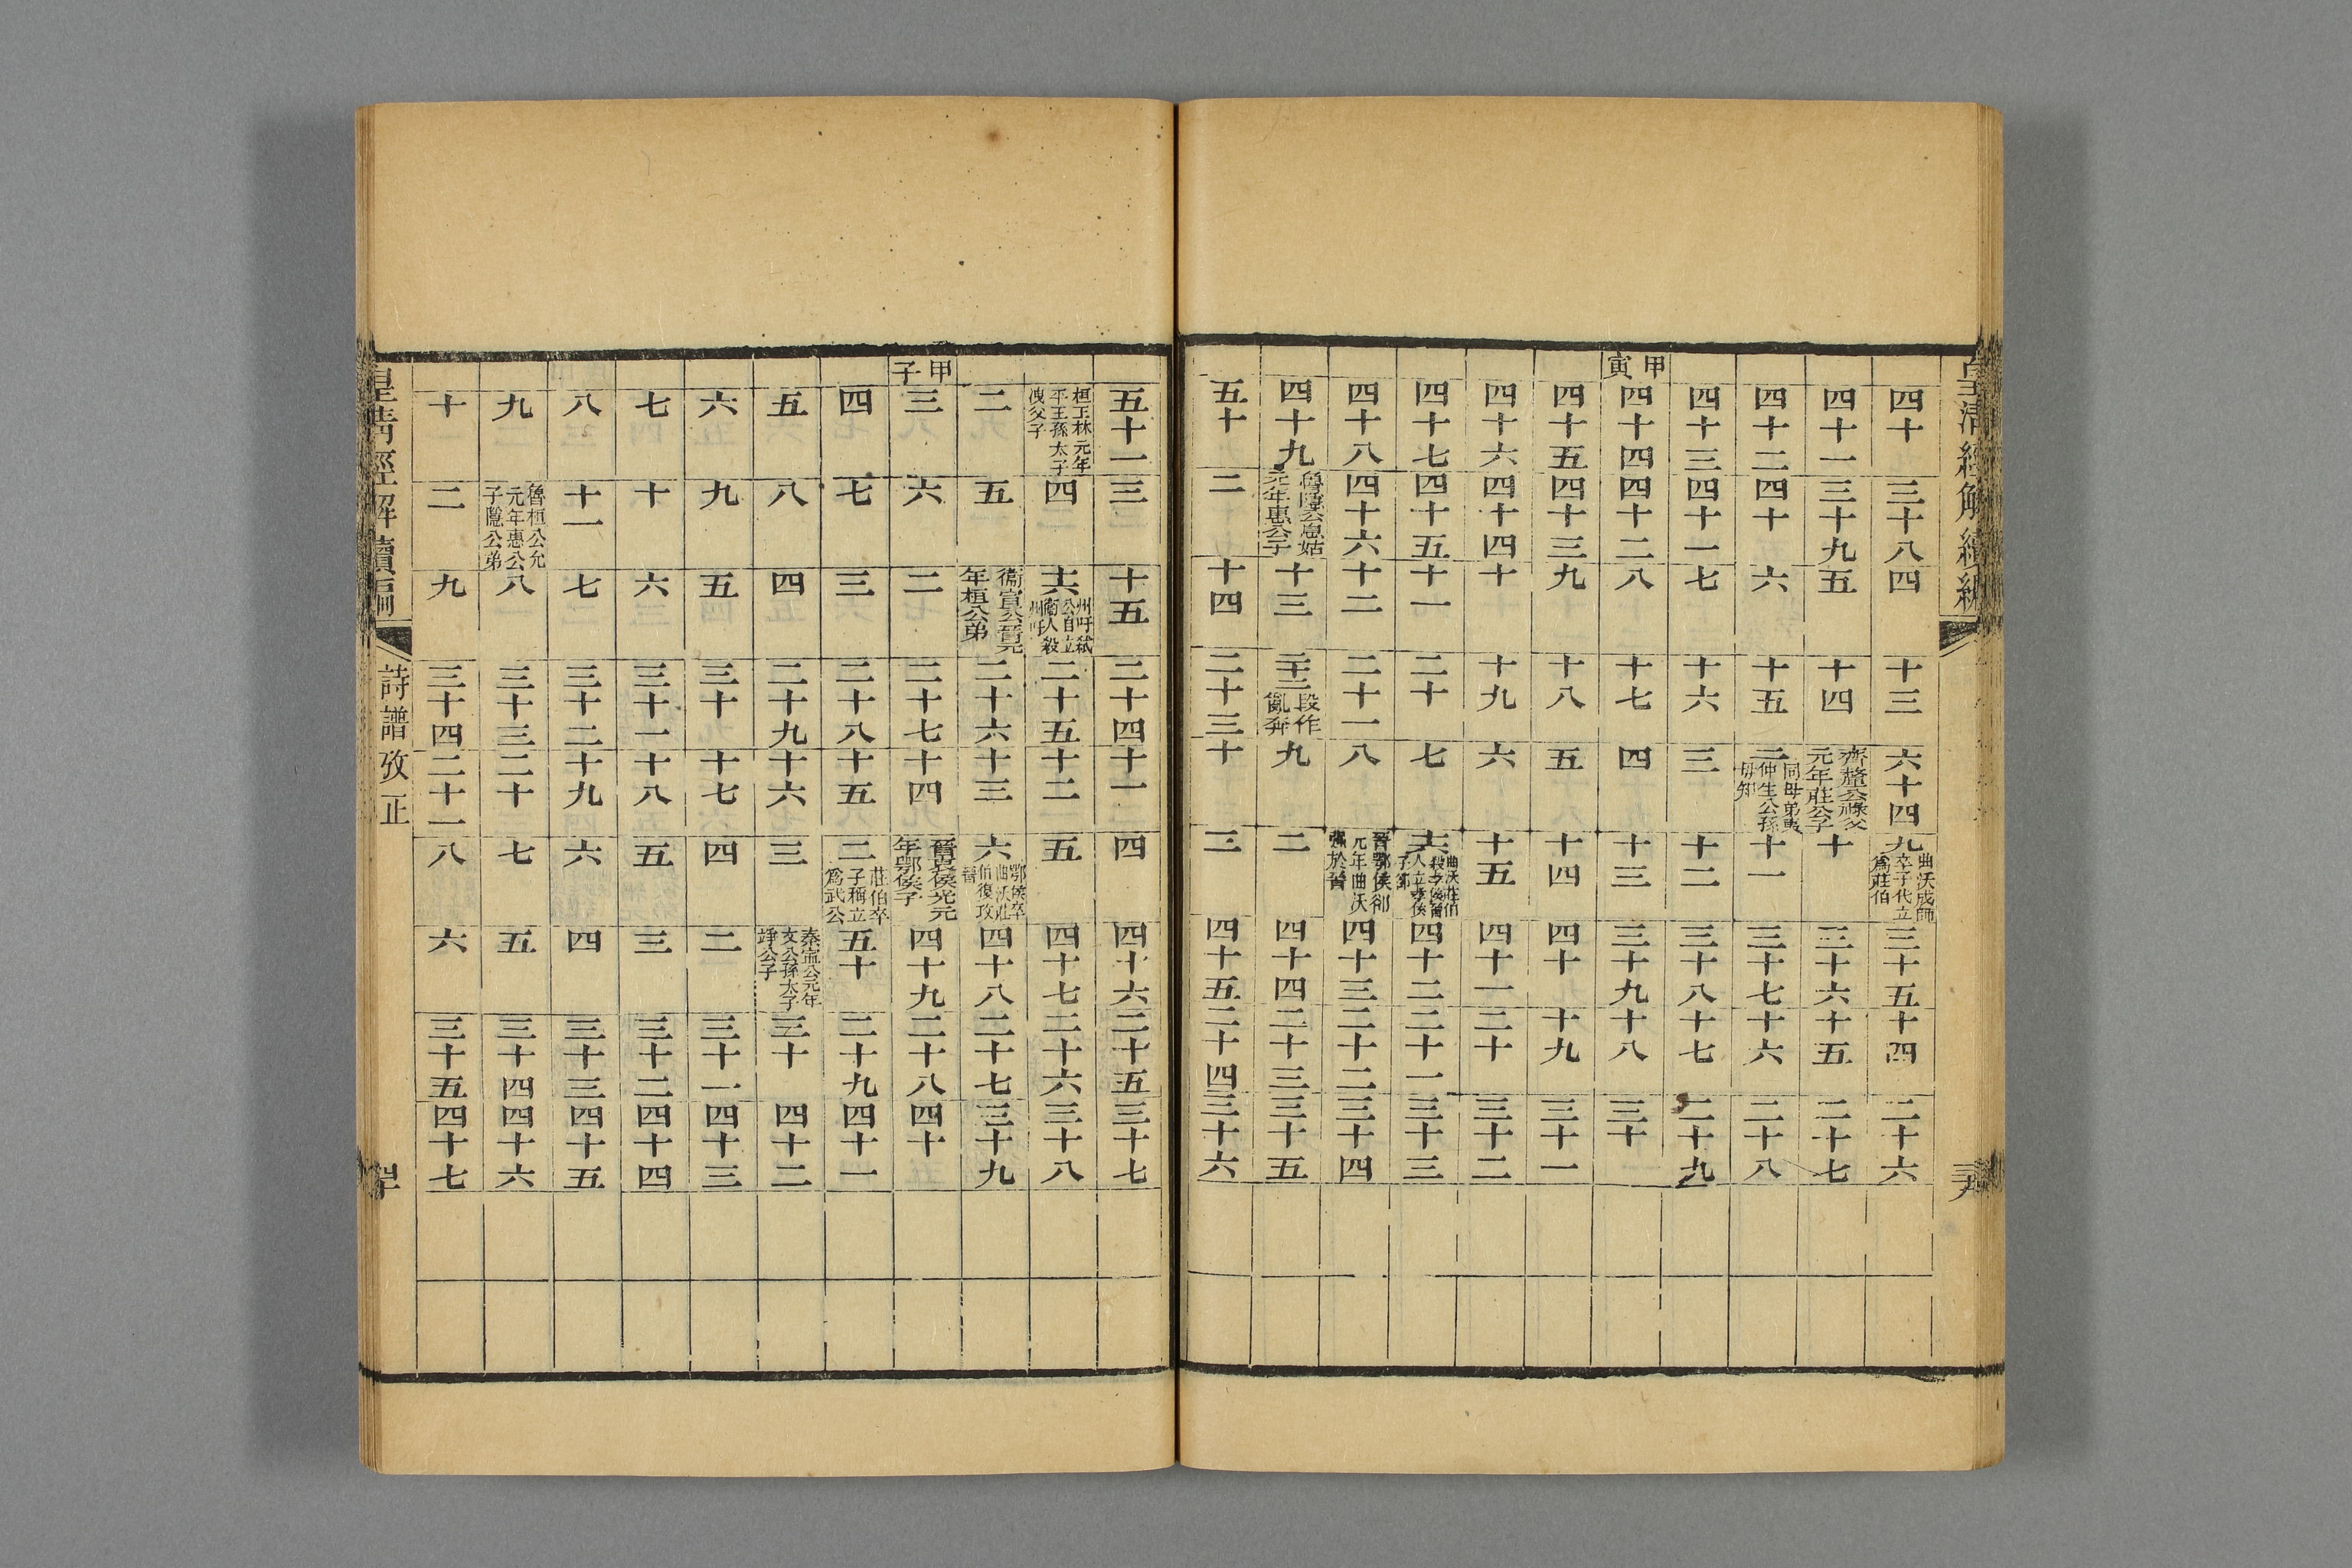 皇清經解續編
四十 三十八 四 十三 六十四 九 曲沃成師卒子代立爲莊伯 三十五 十四 二十六
四十一 三十九 五 十四 齊釐公祿父元年莊公子 十 三十六 十五 二十七
四十二 四十 六 十五 二 同母弟夷仲生公孫毋知 十一 三十七 十六 二十八
四十三 四十一 七 十六 三 十二 三十八 十七 二十九
甲寅 四十四 四十二 八 十七 四 十三 三十九 十八 三十
四十五 四十三 九 十八 五 十四 四十 十九 三十一
四十六 四十四 十 十九 六 十五 四十一 二十 三十二
四十七 四十五 十一 二十 七 十六 曲沃莊伯殺孝侯晉人立孝侯子郤 四十二 二十一 三十三
四十八 四十六 十二 二十一 八 晉鄂侯郤元年曲沃彊於晉 四十三 二十二 三十四
四十九 魯隱公息姑元年惠公子 十三 二十二 段作亂奔 九 二 四十四 二十三 三十五
五十 二 十四 二十三 十 三 四十五 二十四 三十六
五十一 三 十五 二十四 十一 四 四十六 二十五 三十七
桓王林元年平王孫太子洩父子 四 十六 州吁弒公自立衛人殺州吁 二十五 十二 五 四十七 二十六 三十八
二 五 衞宣公晉元年桓公弟 二十六 十三 六 鄂侯卒曲沃莊伯復攻晉 四十八 二十七 三十九
甲子 三 六 二 二十七 十四 晉哀侯光元年鄂侯子 四十九 二十八 四十
四 七 三 二十八 十五 二 莊伯卒子稱立爲武公 五十 二十九 四十一
五 八 四 二十九 十六 三 秦寗公元年文公孫太子竫公子 三十 四十二
六 九 五 三十 十七 四 二 三十一 四十三
七 十 六 三十一 十八 五 三 三十二 四十四
八 十一 七 三十二 十九 六 四 三十三 四十五
九 魯桓公允元年惠公子隱公弟 八 三十三 二十 七 五 三十四 四十六
十 二 九 三十四 二十一 八 六 三十五 四十七
皇清經解續編 詩譜攷正